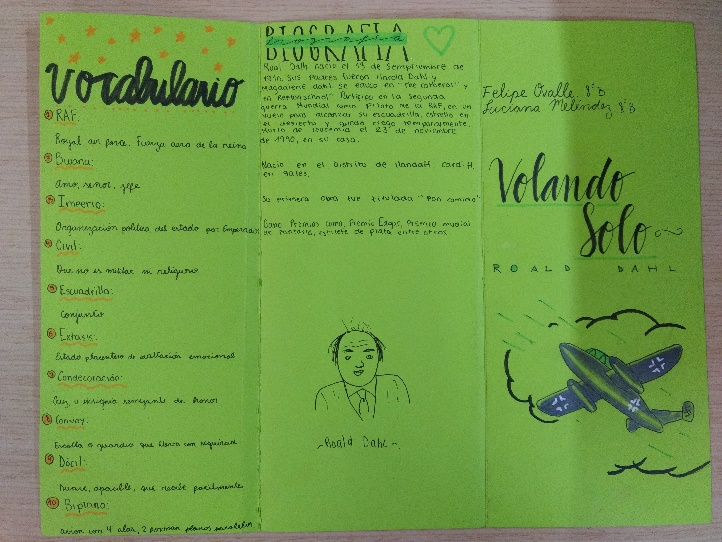 Vocabulario
1 RAF:
Royal air force, Fuerza aera de la reina
2 Bwana:
Amo, señor, jefe
3 Imperio:
Organización politica del estado por Emperador
4 Civil:
Que no es militar ni religioso
5 Escuadrilla:
Conjunto
6 Extasis:
Estado placentero de exaltación emocional
7 Condecoración:
Cruz u insignia semejante de honor
8 Convoy:
Escolta o guardia que lleva con seguridad
9 Dócil:
Suave, apacible, que recibe facilmente
10 Biplano:
avion con 4 alas, 2 forman planos paralelos
BIOGRAFIA
Roal Dahl nacio el 13 de Septiembre de
1916. Sus padres fueron Harold Dahl y
Magdalene dahl. Se educo en "the
y en Repton school". Participo en la segunda
guerra Mundial como Piloto de la RAF, en un
vuelo para alcanzar su escuadrilla, estrello en
el desierto y quedo ciego temporalmente.
Murio de leucemia el 23 de noviembre
de 1990, en su casa.
Nacio en el Distrito de Llandaff Cardiff,
en Gales.
Su primera obra fue titulada "Pan comido"
Gano Premios como, Premio Edgar, Premio mundial
de fantasia, estilete de plata entre otros
~Roald Dahl~
Felipe Ovalle, 8°B
Luciana Meléndez 8°B
Volando
Solo
ROALD DAHL